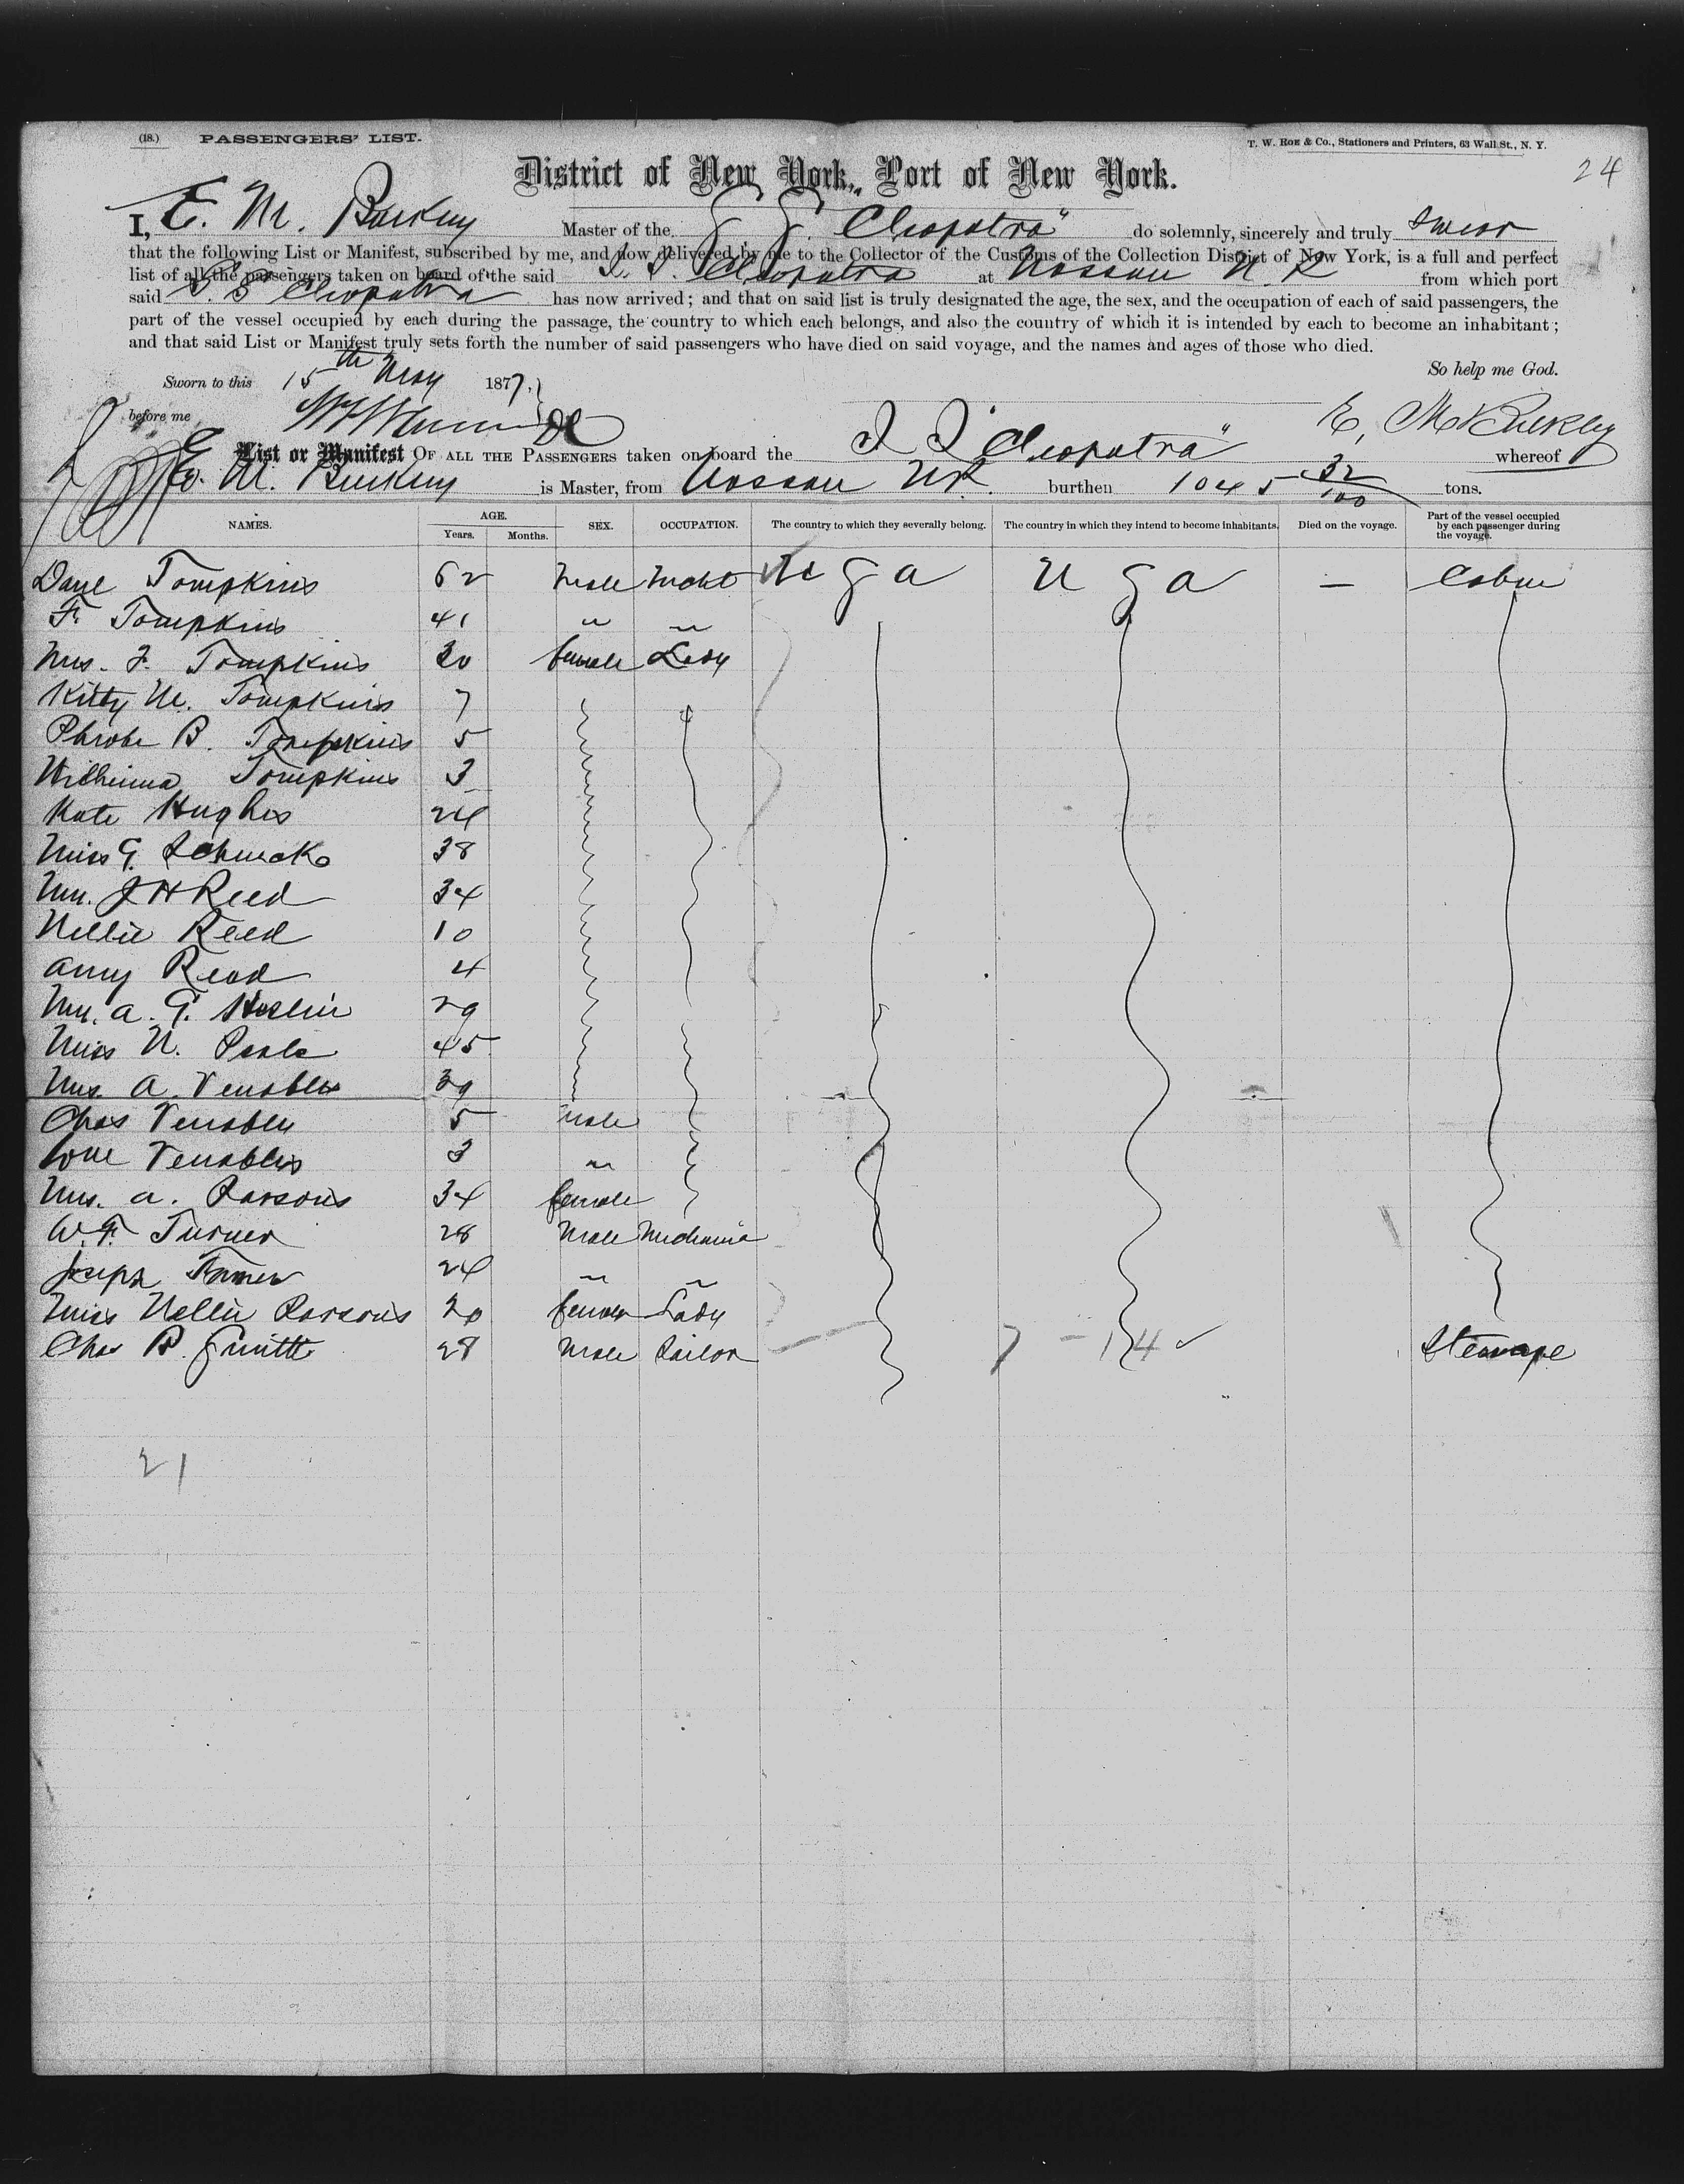 (18.) PASSENGERS' LIST.
T. W. ROE & Co., Stationers and Printers, 63 Wall St., N. Y.
24
District of New York, Port of New York.
I, E. M. Bulkley Master of the S. S. "Cleopatra" do solemnly, sincerely and truly swear
that the following List or Manifest, subscribed by me, and now delivered by me to the Collector of the Customs of the Collection District of New York, is a full and perfect
list of all the passengers taken on board of the said S. S. Cleopatra at Nassau N. P. from which port
said S. S. Cleopatra has now arrived; and that on said list is truly designated the age, the sex, and the occupation of each of said passengers, the
part of the vessel occupied by each during the passage, the country to which each belongs, and also the country of which it is intended by each to become an inhabitant;
and that said List or Manifest truly sets forth the number of said passengers who have died on said voyage, and the names and ages of those who died.
So help me God.
Sworn to this 15th May 1877,
before me
E. M Bulkley
List or Manifest OF ALL THE PASSENGERS taken on board the S S "Cleopatra" whereof
E. M. Bulkley is Master, from Nassau N.P. burthen 1045 32/100 tons.
NAMES. AGE. Years. Months. SEX. OCCUPATION. The country to which they severally belong. The country in which they intend to become inhabitants. Died on the voyage. Part of the vessel occupied by each passenger during the voyage.
Tompkins 62 Male U S A U S A — Cabin
F. Tompkins 41 " "
Mrs. F. Tompkins 30 female Lady
Kitty M. Tompkins 7
Phoebe B. Tompkins 5
Tompkins 3
Kate Hughes 24
Miss G. 38
Mrs. J H Reed 34
Nellie Reed 10
Amy Reed 4
Mrs. A. G. 29
Miss N. 45
Mrs. A. Venables 39
Chas Venables 5 male
Venables 3 "
Mrs. A. Parsons 34 female
W. F. Turner 28 Male Mechanic
Joseph 24 " "
Miss Nellie Parsons 20 female Lady
Chas B. Smith 28 Male Sailor 7 - 14 Steerage
21